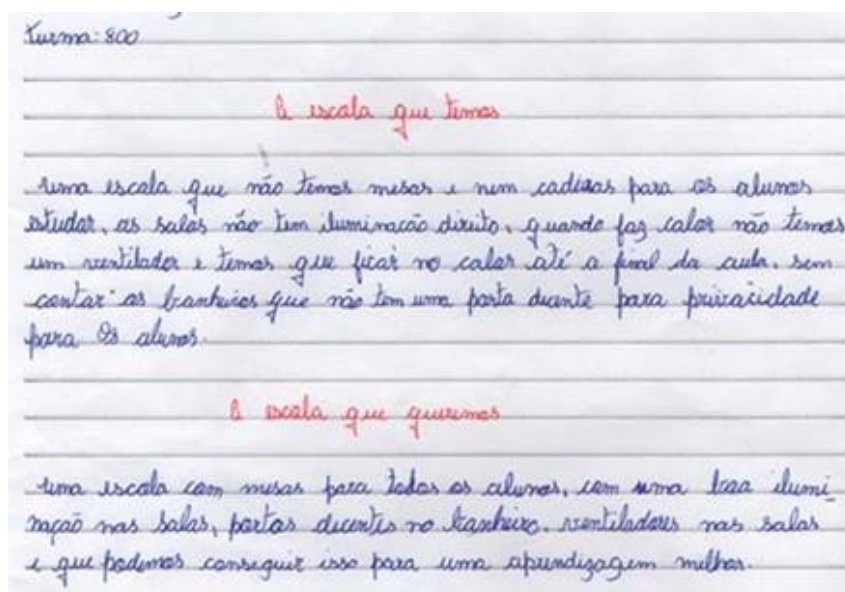 turma: 800
A escola que temos
uma escola que não temos mesas e nem cadiras para os alunos
estudar, as salas não tem iluminacão direito, quando faz calor não temos
um ventilador e temos que ficar no calor até a final da aula. sem
contar os banheiros que não tem uma porta dicente para privacidade
para os alunos.
A escola que queremos
uma escola com mesas para todos os alunos, com uma boa ilumi_
nação nas salas, portas decentes no banheiro. ventiladores nas salas
e que podemos conseguir isso para uma apundizagem melhor.